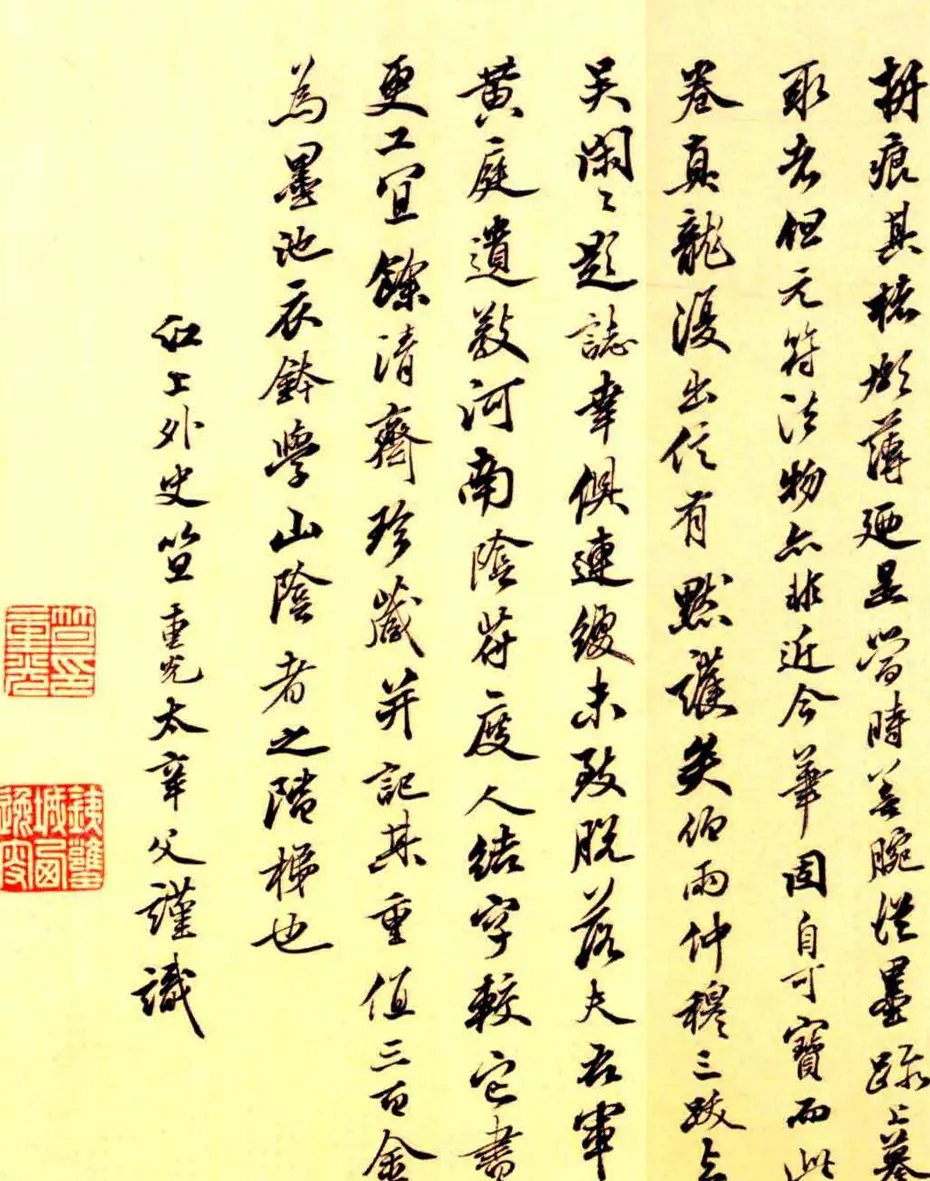 搨痕其楮瘢薄迺是當時善腕從墨跡上摹
取者但元符法物亦非近今華固自可寶而此
卷真龍復出信有默護矣伯雨仲穆三跋與
吳閑〻題誌幸俱連綴未致脫落夫右軍
黃庭遺教河南陰符度人結字較它書
更工宜餘清齋珍藏并記其重值三百金
為墨池衣鉢學山陰者之階梯也
江上外史笪重光太辛父謹識
笪重光印